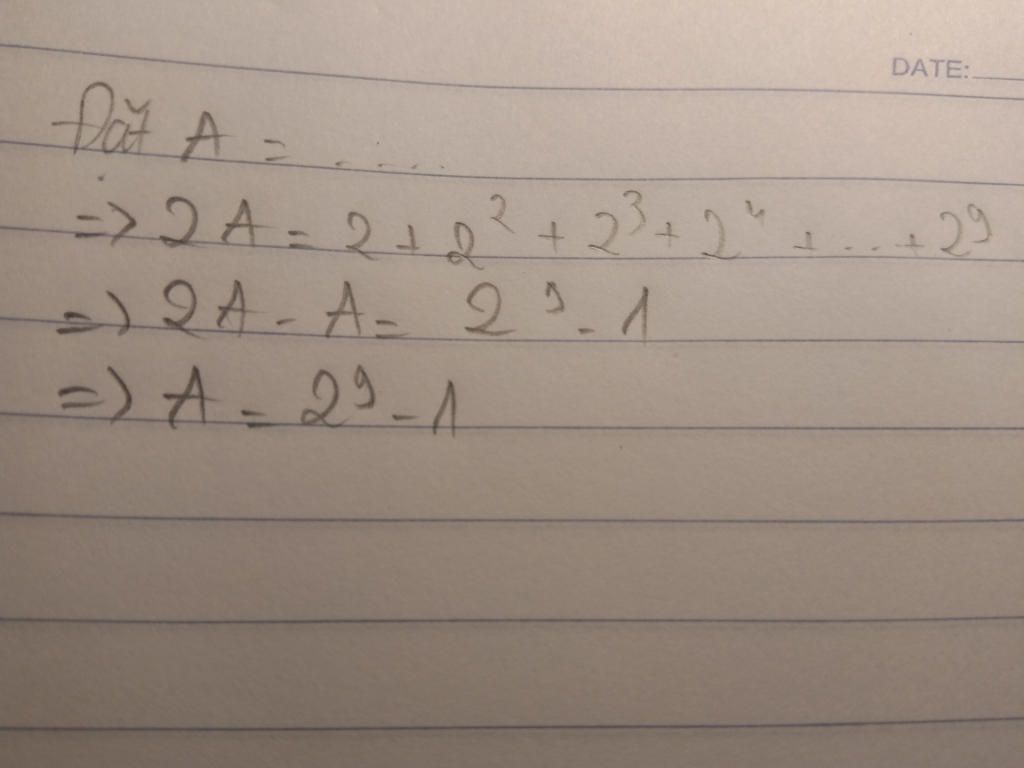 DATE:
Đặt A = .....
=> 2A = 2 + 2² + 2³ + 2⁴ + ... + 2⁹
=> 2A - A = 2⁹ - 1
=> A = 2⁹ - 1